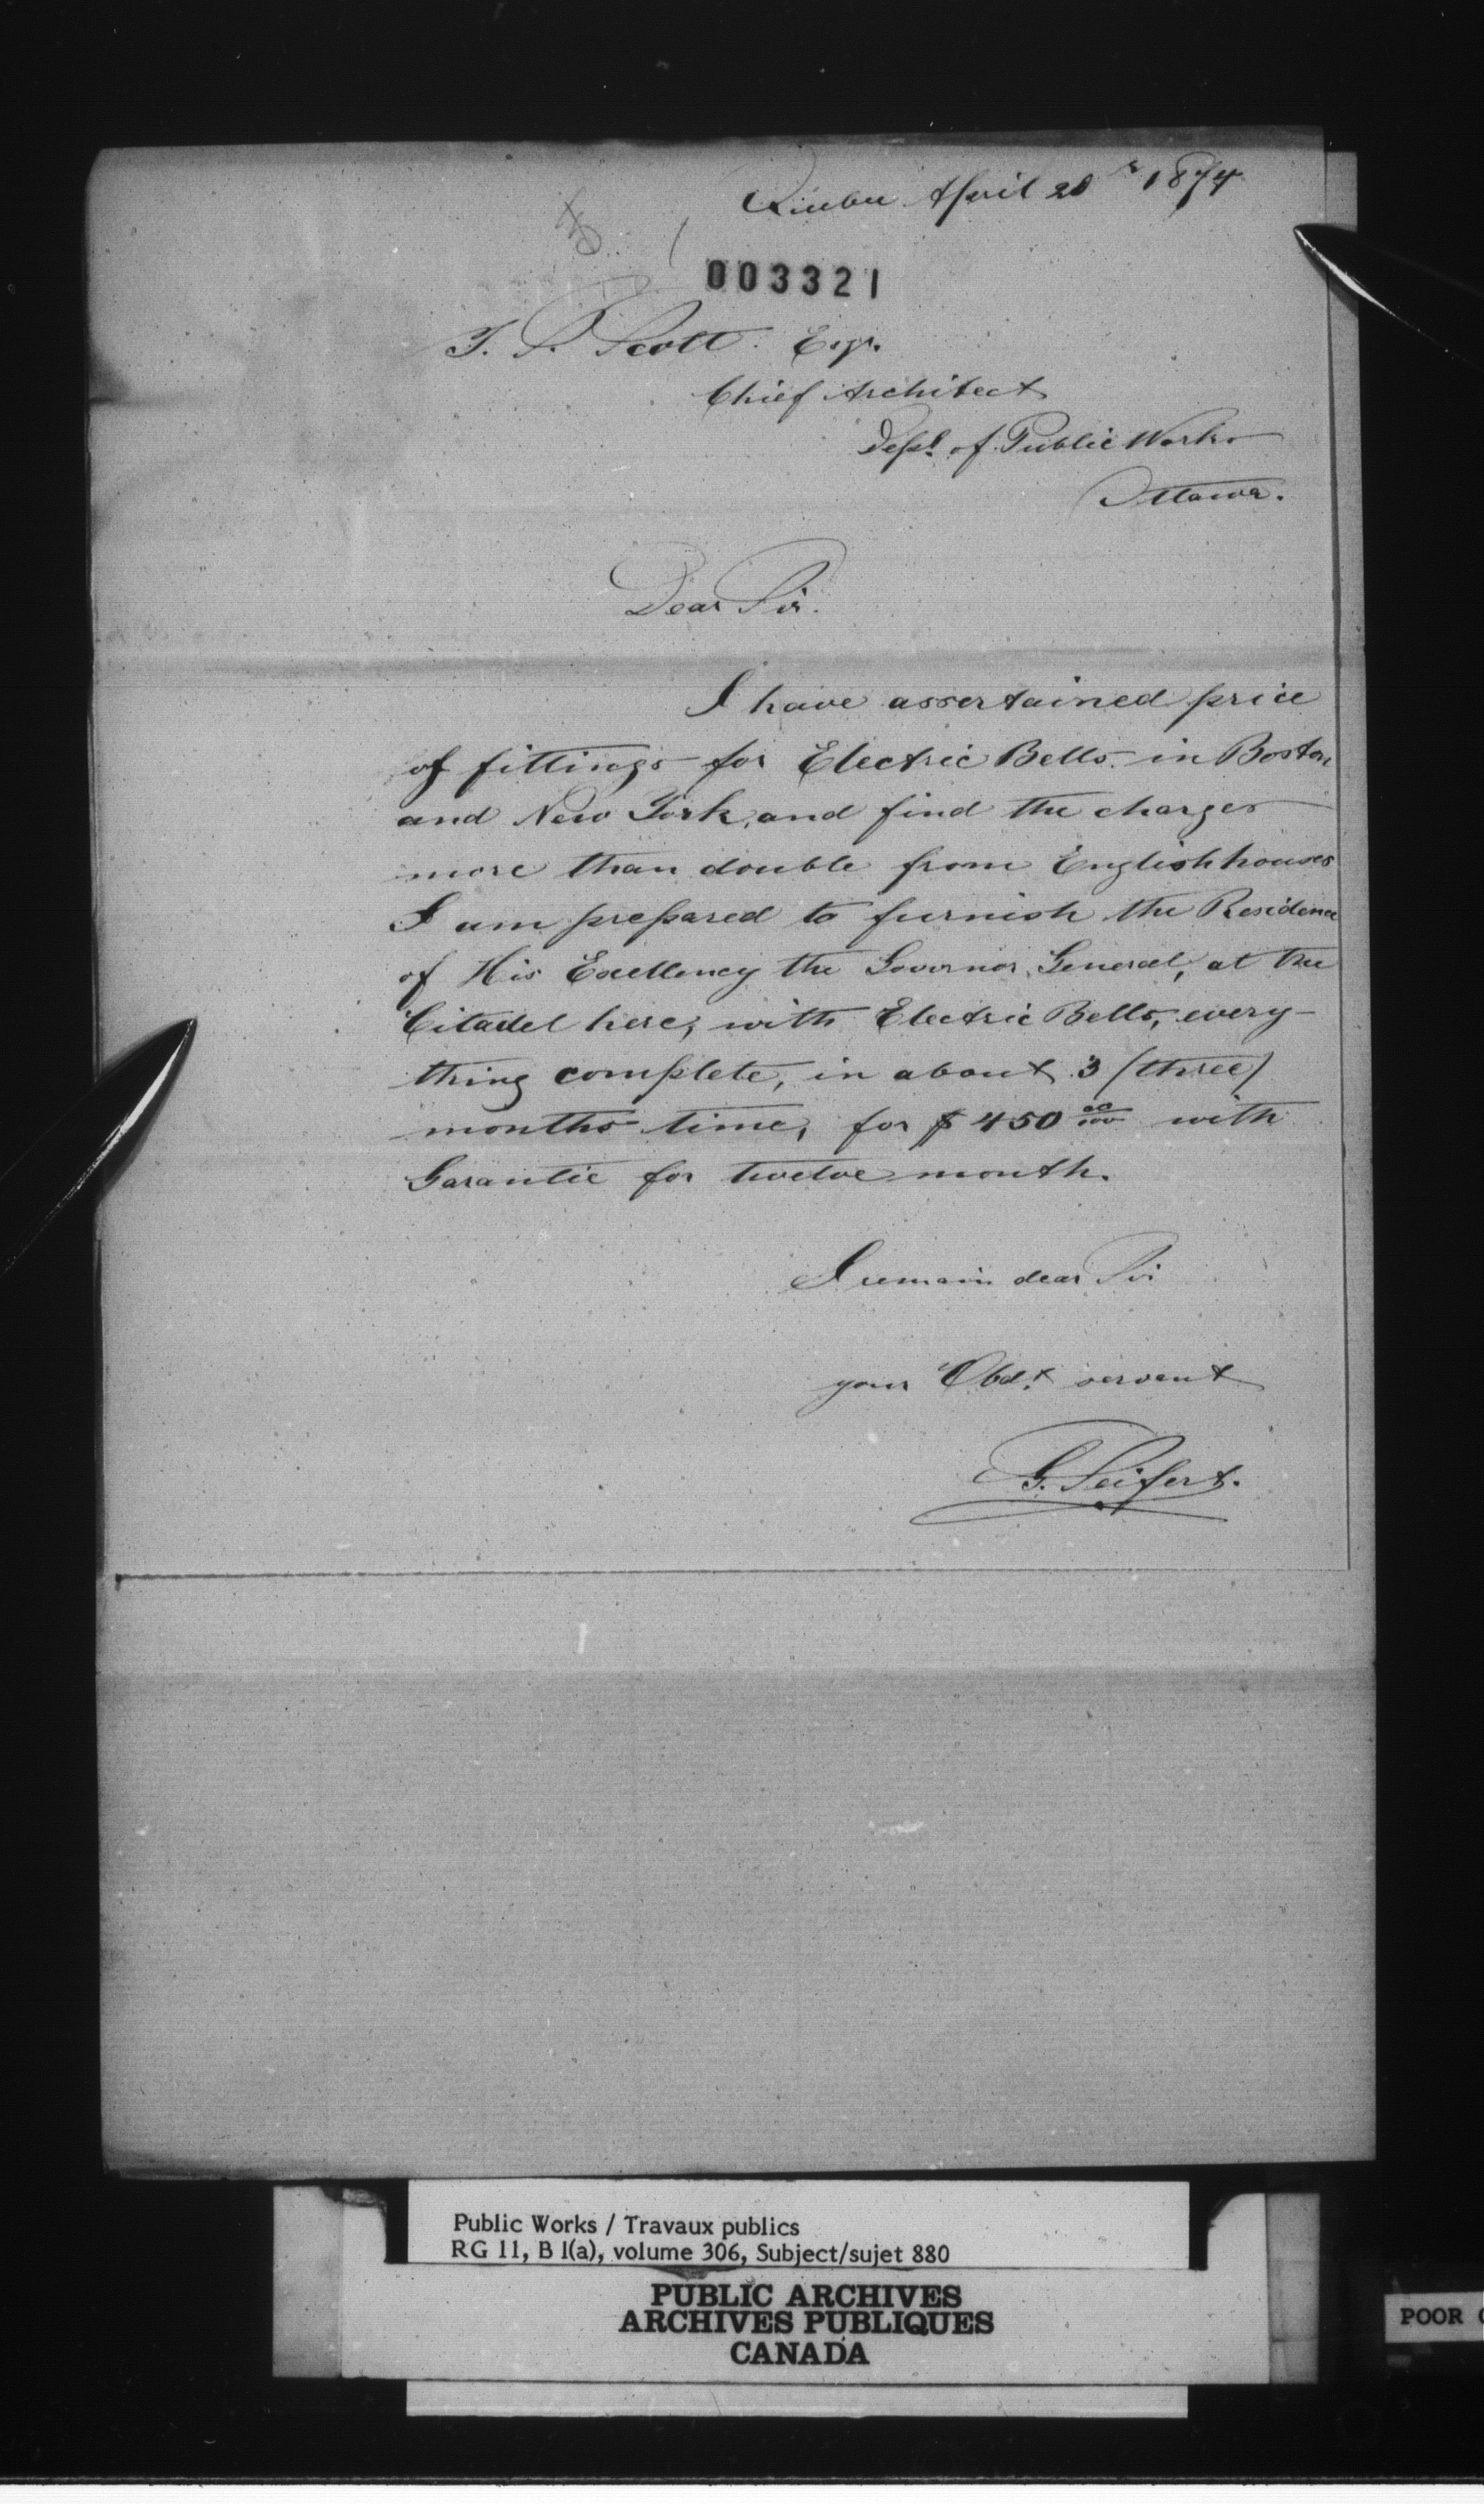 Quebec April 20 1874
003321
T. S. Scott Esqr.
Chief Architect
Dept. of Public Works
Ottawa.
Dear Sir.
I have assertained price
of fittings for Electric Bells in Boston
and New York, and find the charges
more than double from English houses
I am prepared to furnish the Residence
of His Excellency the Governor General, at the
Citadel here, with Electric Bells, every-
thing complete, in about 3 (three)
months time, for $450 00/100 with
Garantie for twelve month.
I remain dear Sir
your Obdt. servant
G. Seifert.
Public Works / Travaux publics
RG 11, B 1(a), volume 306, Subject/sujet 880
PUBLIC ARCHIVES
ARCHIVES PUBLIQUES
CANADA
POOR